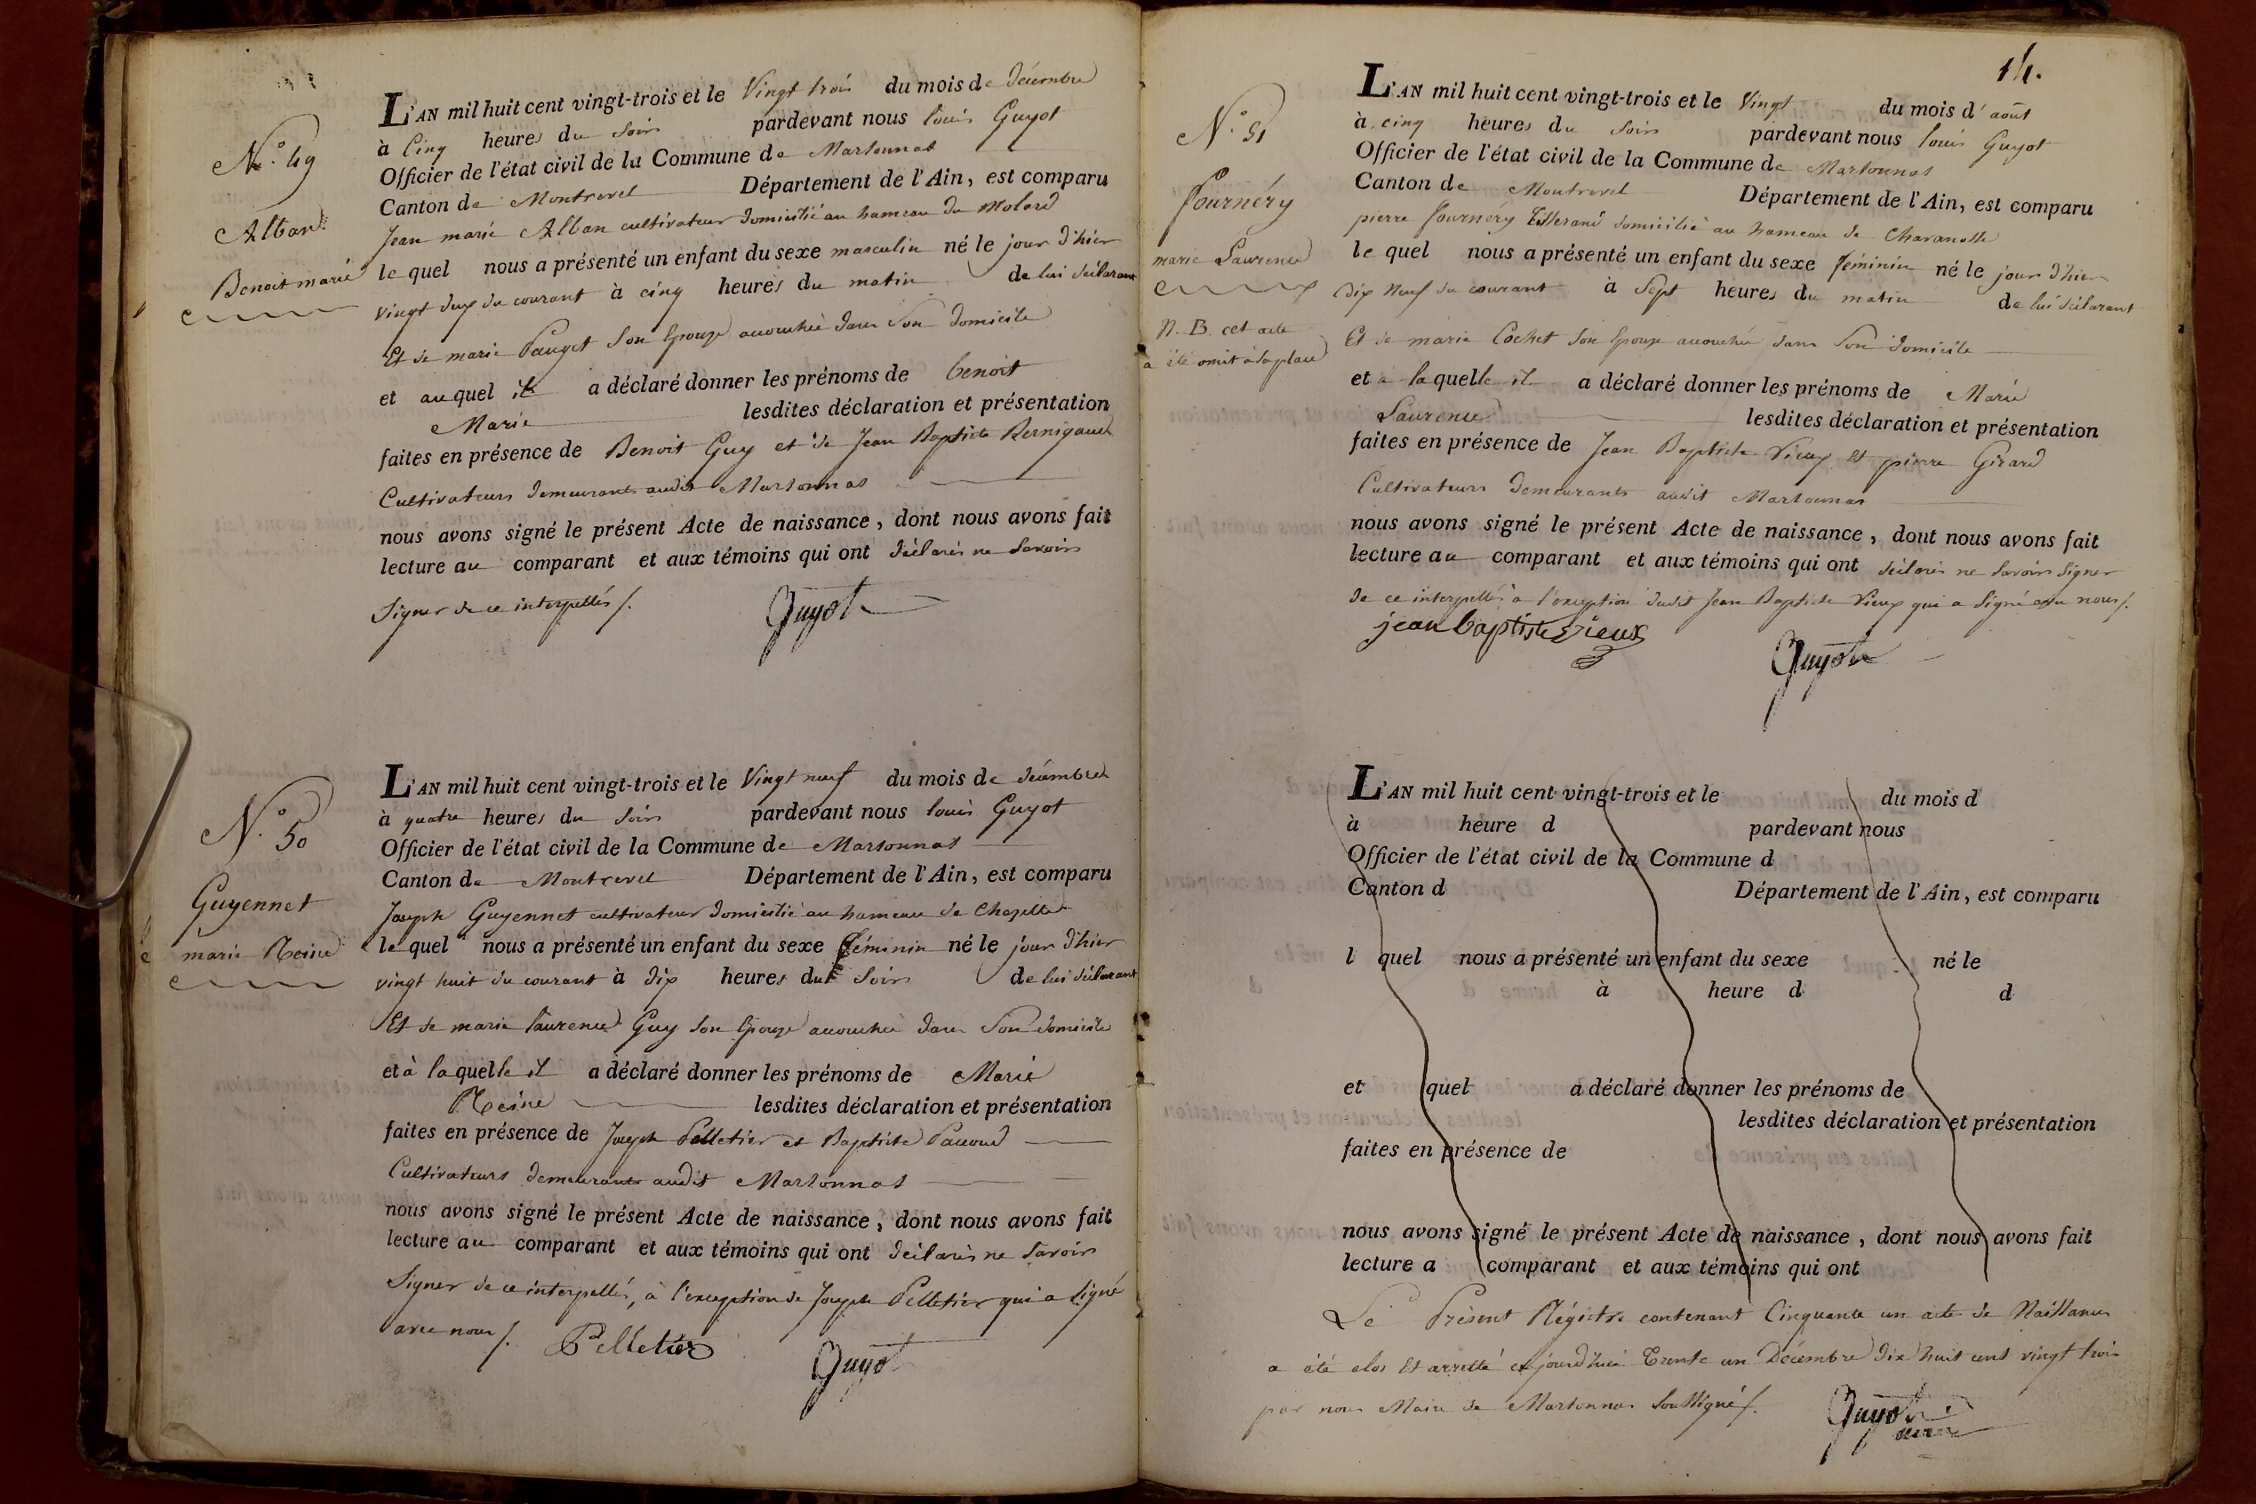 N.° 49
Alban
Benoit marie
L'AN mil huit cent vingt-trois et le Vingt trois du mois de décembre
à Cinq heures du Soir pardevant nous louis Guyot
Officier de l'état civil de la Commune de Marsonnas
Canton de Montrevel Département de l'Ain, est comparu
Jean marie Alban cultivateur domicilié au hameau du Molard
le quel nous a présenté un enfant du sexe masculin né le jour d'hier
vingt deux du courant à cinq heures du matin de lui déclarant
Et de marie Pauget Son Epouse accouchée dans Son domicile
et au quel il a déclaré donner les prénoms de benoit
Marie lesdites déclaration et présentation
faites en présence de Benoit Guy et de Jean Baptiste Bernigaud
Cultivateurs demeurants audit Marsonnas
nous avons signé le présent Acte de naissance, dont nous avons fait
lecture au comparant et aux témoins qui ont déclarés ne Savoir
Signer de ce interpellés /.
Guyot
N.° 50
Guyennet
marie Reine
L'AN mil huit cent vingt-trois et le Vingt neuf du mois de décembre
à quatre heures du Soir pardevant nous louis Guyot
Officier de l'état civil de la Commune de Marsonnas
Canton de Montrevel Département de l'Ain, est comparu
Joseph Guyennet cultivateur domicilié au hameau de Chapelle
le quel nous a présenté un enfant du sexe féminin né le jour d'hier
vingt huit du courant à dix heures du Soir de lui déclarant
Et de marie laurence Guy Son Epouse accouchée dans Son domicile
et à la quelle il a déclaré donner les prénoms de Marie
Reine lesdites déclaration et présentation
faites en présence de Joseph Pelletier et Baptiste Paccoud
Cultivateurs demeurants audit Marsonnas
nous avons signé le présent Acte de naissance, dont nous avons fait
lecture au comparant et aux témoins qui ont déclarés ne Savoir
Signer de ce interpellés, à l'exception de Joseph Pelletier qui a Signé
avec nous /. Pelletier
Guyot
14.
N.° 51
fournéry
marie Laurence
N. B. cet acte
a été omit à Sa place
L'AN mil huit cent vingt-trois et le Vingt du mois d'août
à cinq heures du Soir pardevant nous louis Guyot
Officier de l'état civil de la Commune de Marsonnas
Canton de Montrevel Département de l'Ain, est comparu
pierre fournéry tisserand domicilié au hameau de
le quel nous a présenté un enfant du sexe féminin né le jour d'hier
dix neuf du courant à Sept heures du matin de lui déclarant
Et de marie Cochet Son Epouse accouchée dans Son domicile
et a la quelle il a déclaré donner les prénoms de Marie
Laurence lesdites déclaration et présentation
faites en présence de Jean Baptiste Vieux et pierre Girard
Cultivateurs demeurants audit Marsonnas
nous avons signé le présent Acte de naissance, dont nous avons fait
lecture au comparant et aux témoins qui ont déclarés ne Savoir Signer
de ce interpellés à l'exception dudit Jean Baptiste Vieux qui a Signé avec nous /.
jean baptiste vieux
Guyot
L'AN mil huit cent vingt-trois et le du mois d
à heure d pardevant nous
Officier de l'état civil de la Commune d
Canton d Département de l'Ain, est comparu
l quel nous a présenté un enfant du sexe né le
à heure d d
et quel a déclaré donner les prénoms de
lesdites déclaration et présentation
faites en présence de
nous avons signé le présent Acte de naissance, dont nous avons fait
lecture a comparant et aux témoins qui ont
Le Présent Régistre contenant Cinquante un acte de Naissance
a été clos Et arretté ce jourd'hui Trente un Décembre dix huit cent vingt trois
par nous Maire de Marsonnas Soussigné /.
Guyot